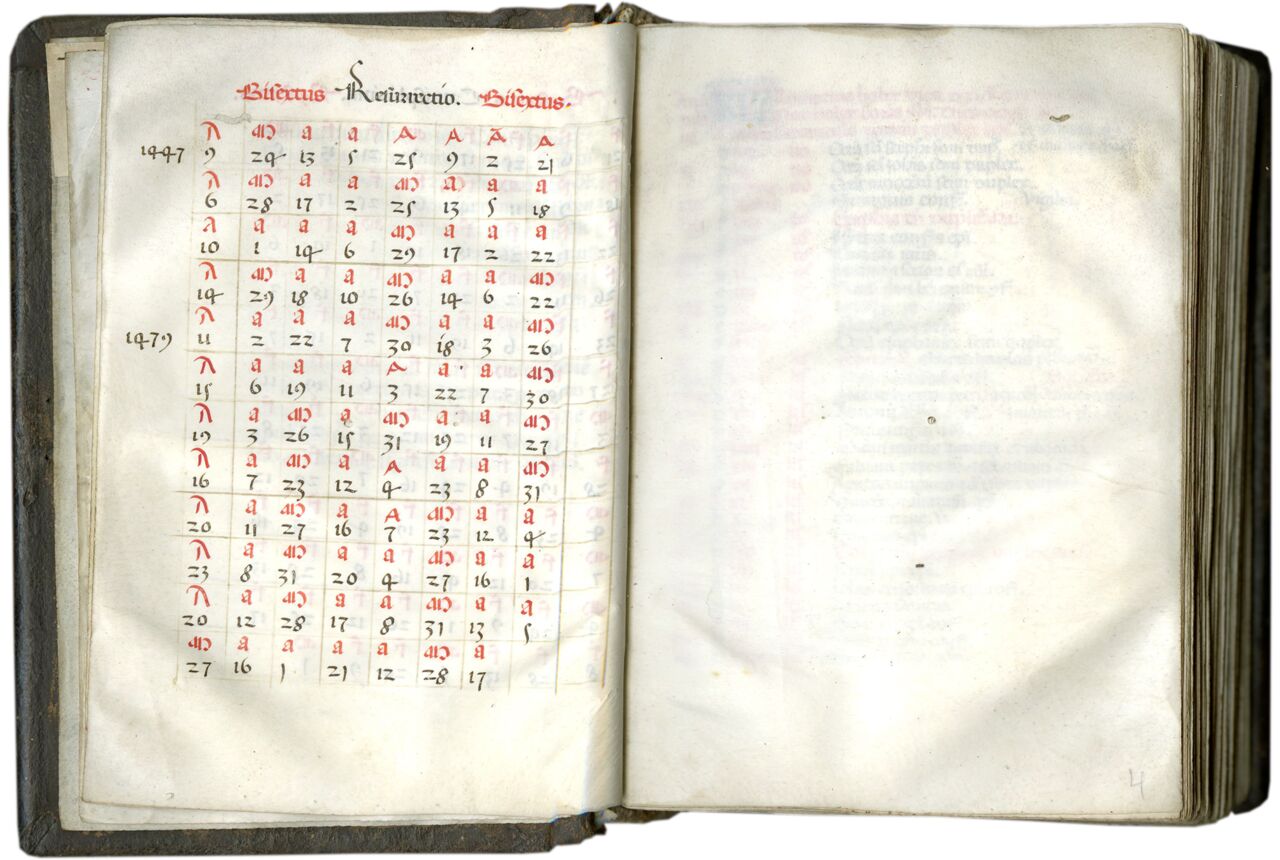 Bisextus Resurrectio. Bisextus.
A m a a A A A A
1447 9 24 13 5 25 9 2 21
A m a a m a a a
6 28 17 2 25 13 5 18
a a a a m a a a
10 1 14 6 29 17 2 22
A m a a m a a m
14 29 18 10 26 14 6 22
A a a a m a a m
1479 11 2 22 7 30 18 3 26
A a a a A a a m
15 6 19 11 3 22 7 30
A a m a m a a m
19 3 26 15 31 19 11 27
A a m a A a a m
16 7 23 12 4 23 8 31
A a m a A m a a
20 11 27 16 7 23 12 4
A a m a a m a a
23 8 31 20 4 27 16 1
A a m a a m a a
20 12 28 17 8 31 13 5
m a a a a m a
27 16 1 21 12 28 17
4